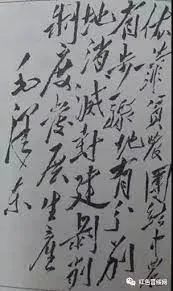 依靠貧農團結中農
有步驟地有分別
地消滅封建剝削
制度發展生產
毛澤東
红色晋绥网